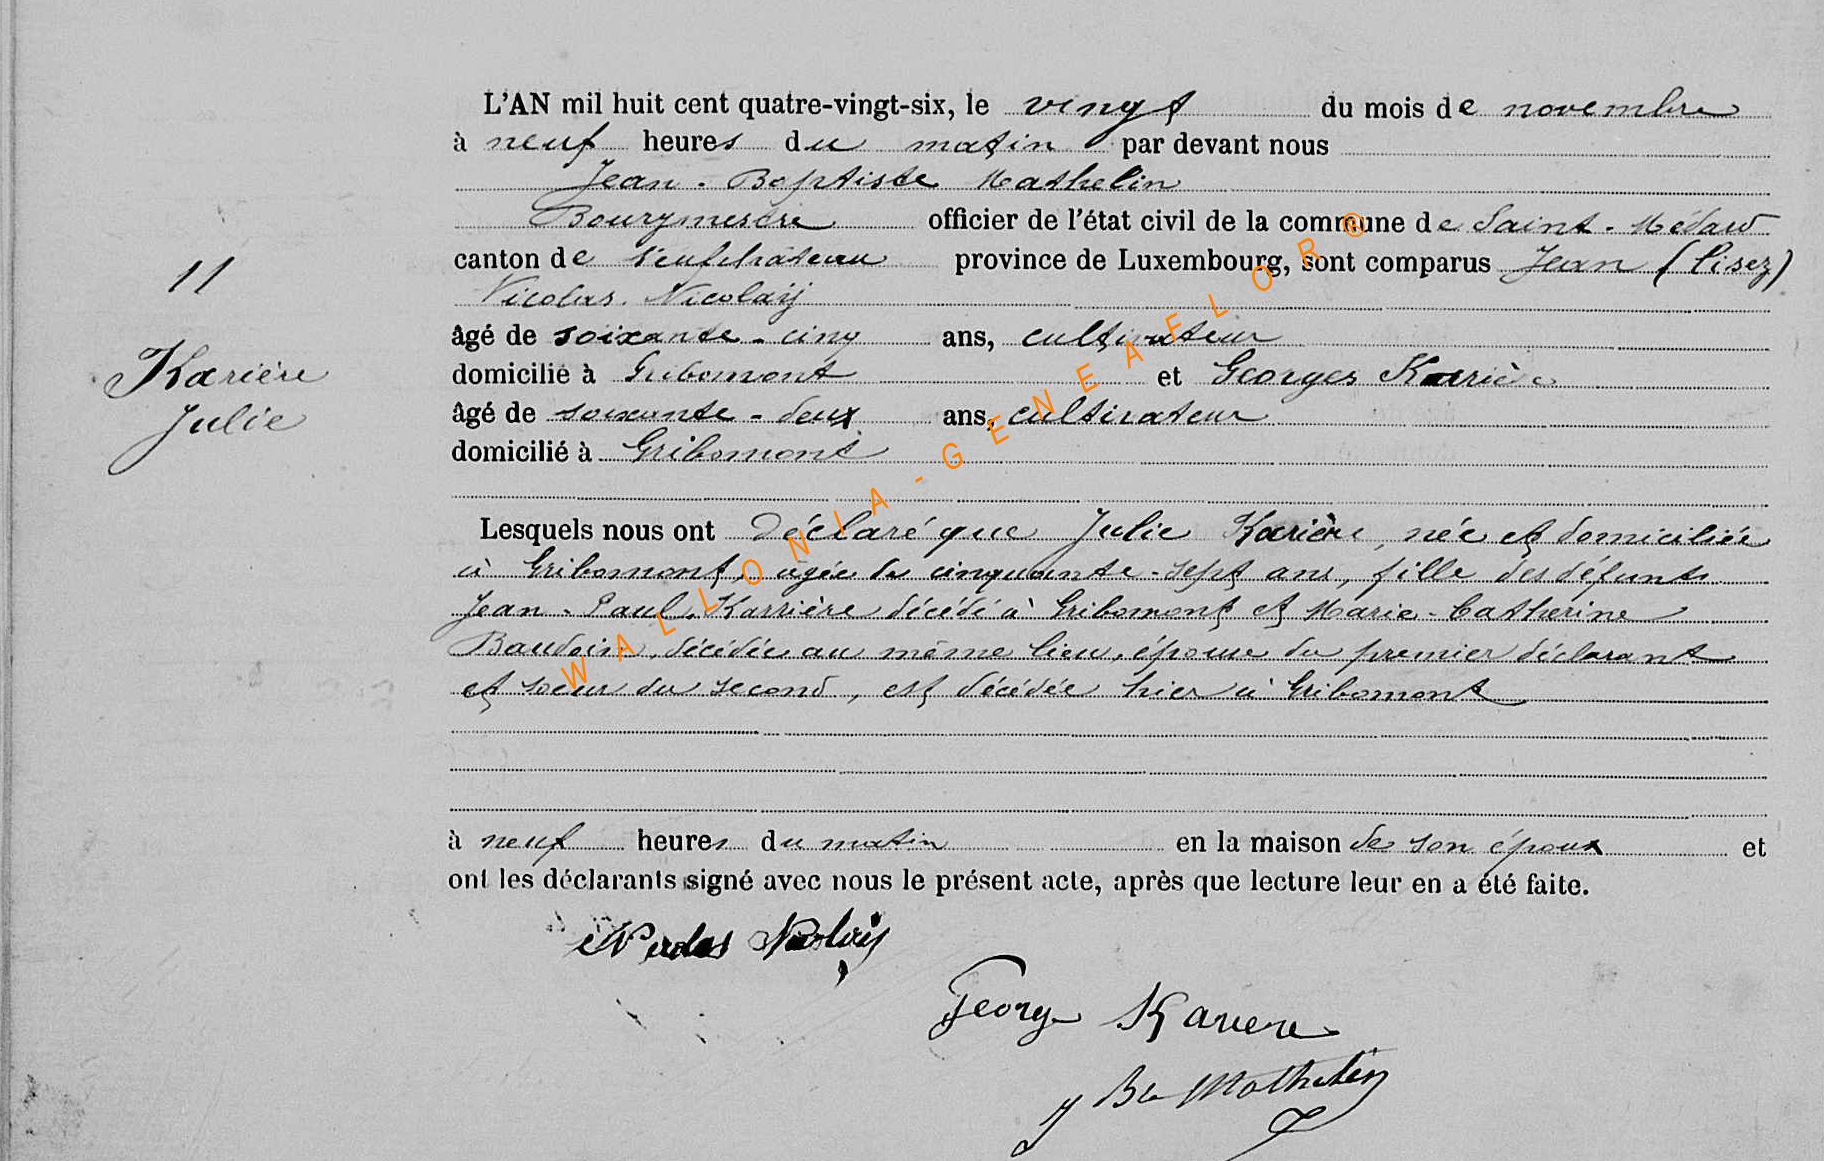 L'AN mil huit cent quatre-vingt-six, le vingt du mois de novembre
à neuf heures du matin par devant nous
Jean-Baptiste Mathelin
Bourgmestre officier de l'état civil de la commune de Saint-Médard
canton de Neufchateau province de Luxembourg, sont comparus Jean (lisez)
Nicolas Nicolaÿ
âgé de soixante-cinq ans, cultivateur
domicilié à Gribomont et Georges Karrière
âgé de soixante-deux ans, cultivateur
domicilié à Gribomont
11
Karière
Julie
Lesquels nous ont déclaré que Julie Karière, née et domiciliée
à Gribomont, agée de cinquante-sept ans, fille des défunts
Jean-Paul Karrière décédé à Gribomont et Marie-Catherine
Baudoin, décédée au même lieu, épouse du premier déclarant
et soeur du second, est décédée hier à Gribomont
à neuf heures du matin en la maison de son époux et
ont les déclarants signé avec nous le présent acte, après que lecture leur en a été faite.
Nicolas Nicolaÿ
George Kariere
J Bte Mathelin
WALLONIA-GENEAFLOR®